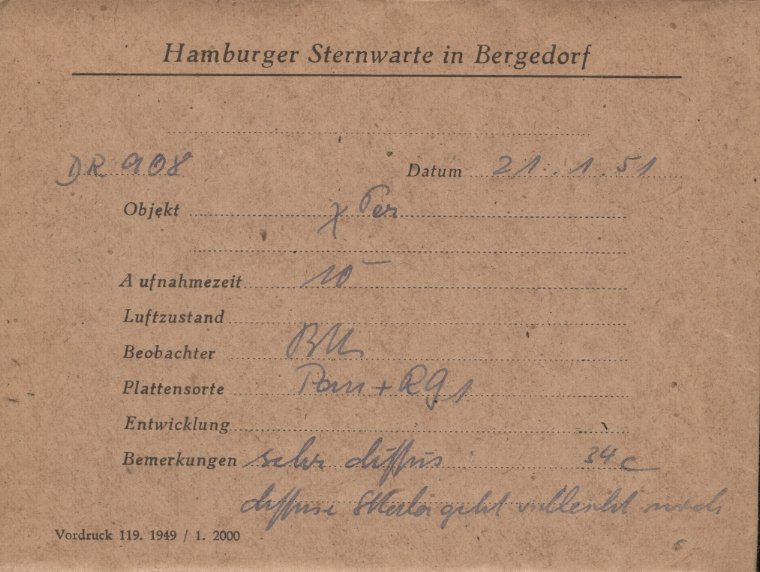 Hamburger Sternwarte in Bergedorf
DR 908 Datum 21. 1. 51
Objekt χ Per
Aufnahmezeit 10
Luftzustand
Beobachter
Plattensorte Pan + RG1
Entwicklung
Bemerkungen sehr diffus 34c
diffuse Skala geht vielleicht noch
Vordruck 119. 1949 / 1. 2000